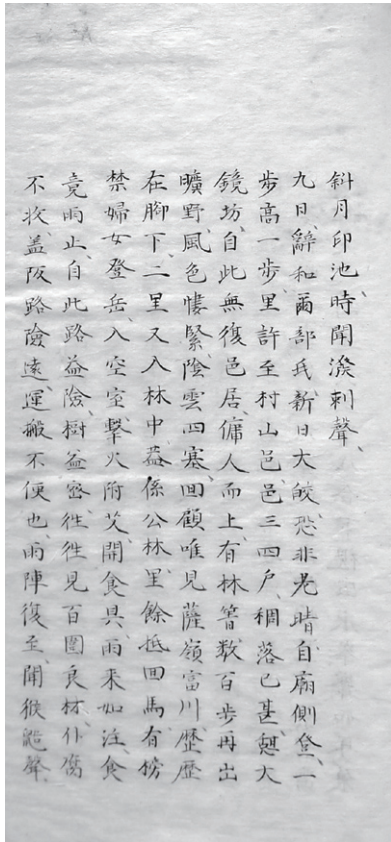 斜月印池、時聞潑剌聲、
九日、辭和爾部氏、新日大皎、恐非老晴、自廟側登、一
步高一步、里許至村山邑、邑三四戶、稠落已甚、憩大
鏡坊、自此無復邑居、傭人而上、有林簹數百步、再出
曠野、風色悽緊、陰雲四塞、回顧唯見薩嶺富川歷歷
在脚下、二里又入林中、蓋係公林、里餘抵回馬、有榜
禁婦女登岳、入空室、擊火附艾、開食具、雨來如注、食
竟雨止、自此路益險、樹益密、往往見百圍良材、仆腐
不收、蓋阪路險遠、運搬不便也、雨陣復至、聞猴鼯聲、